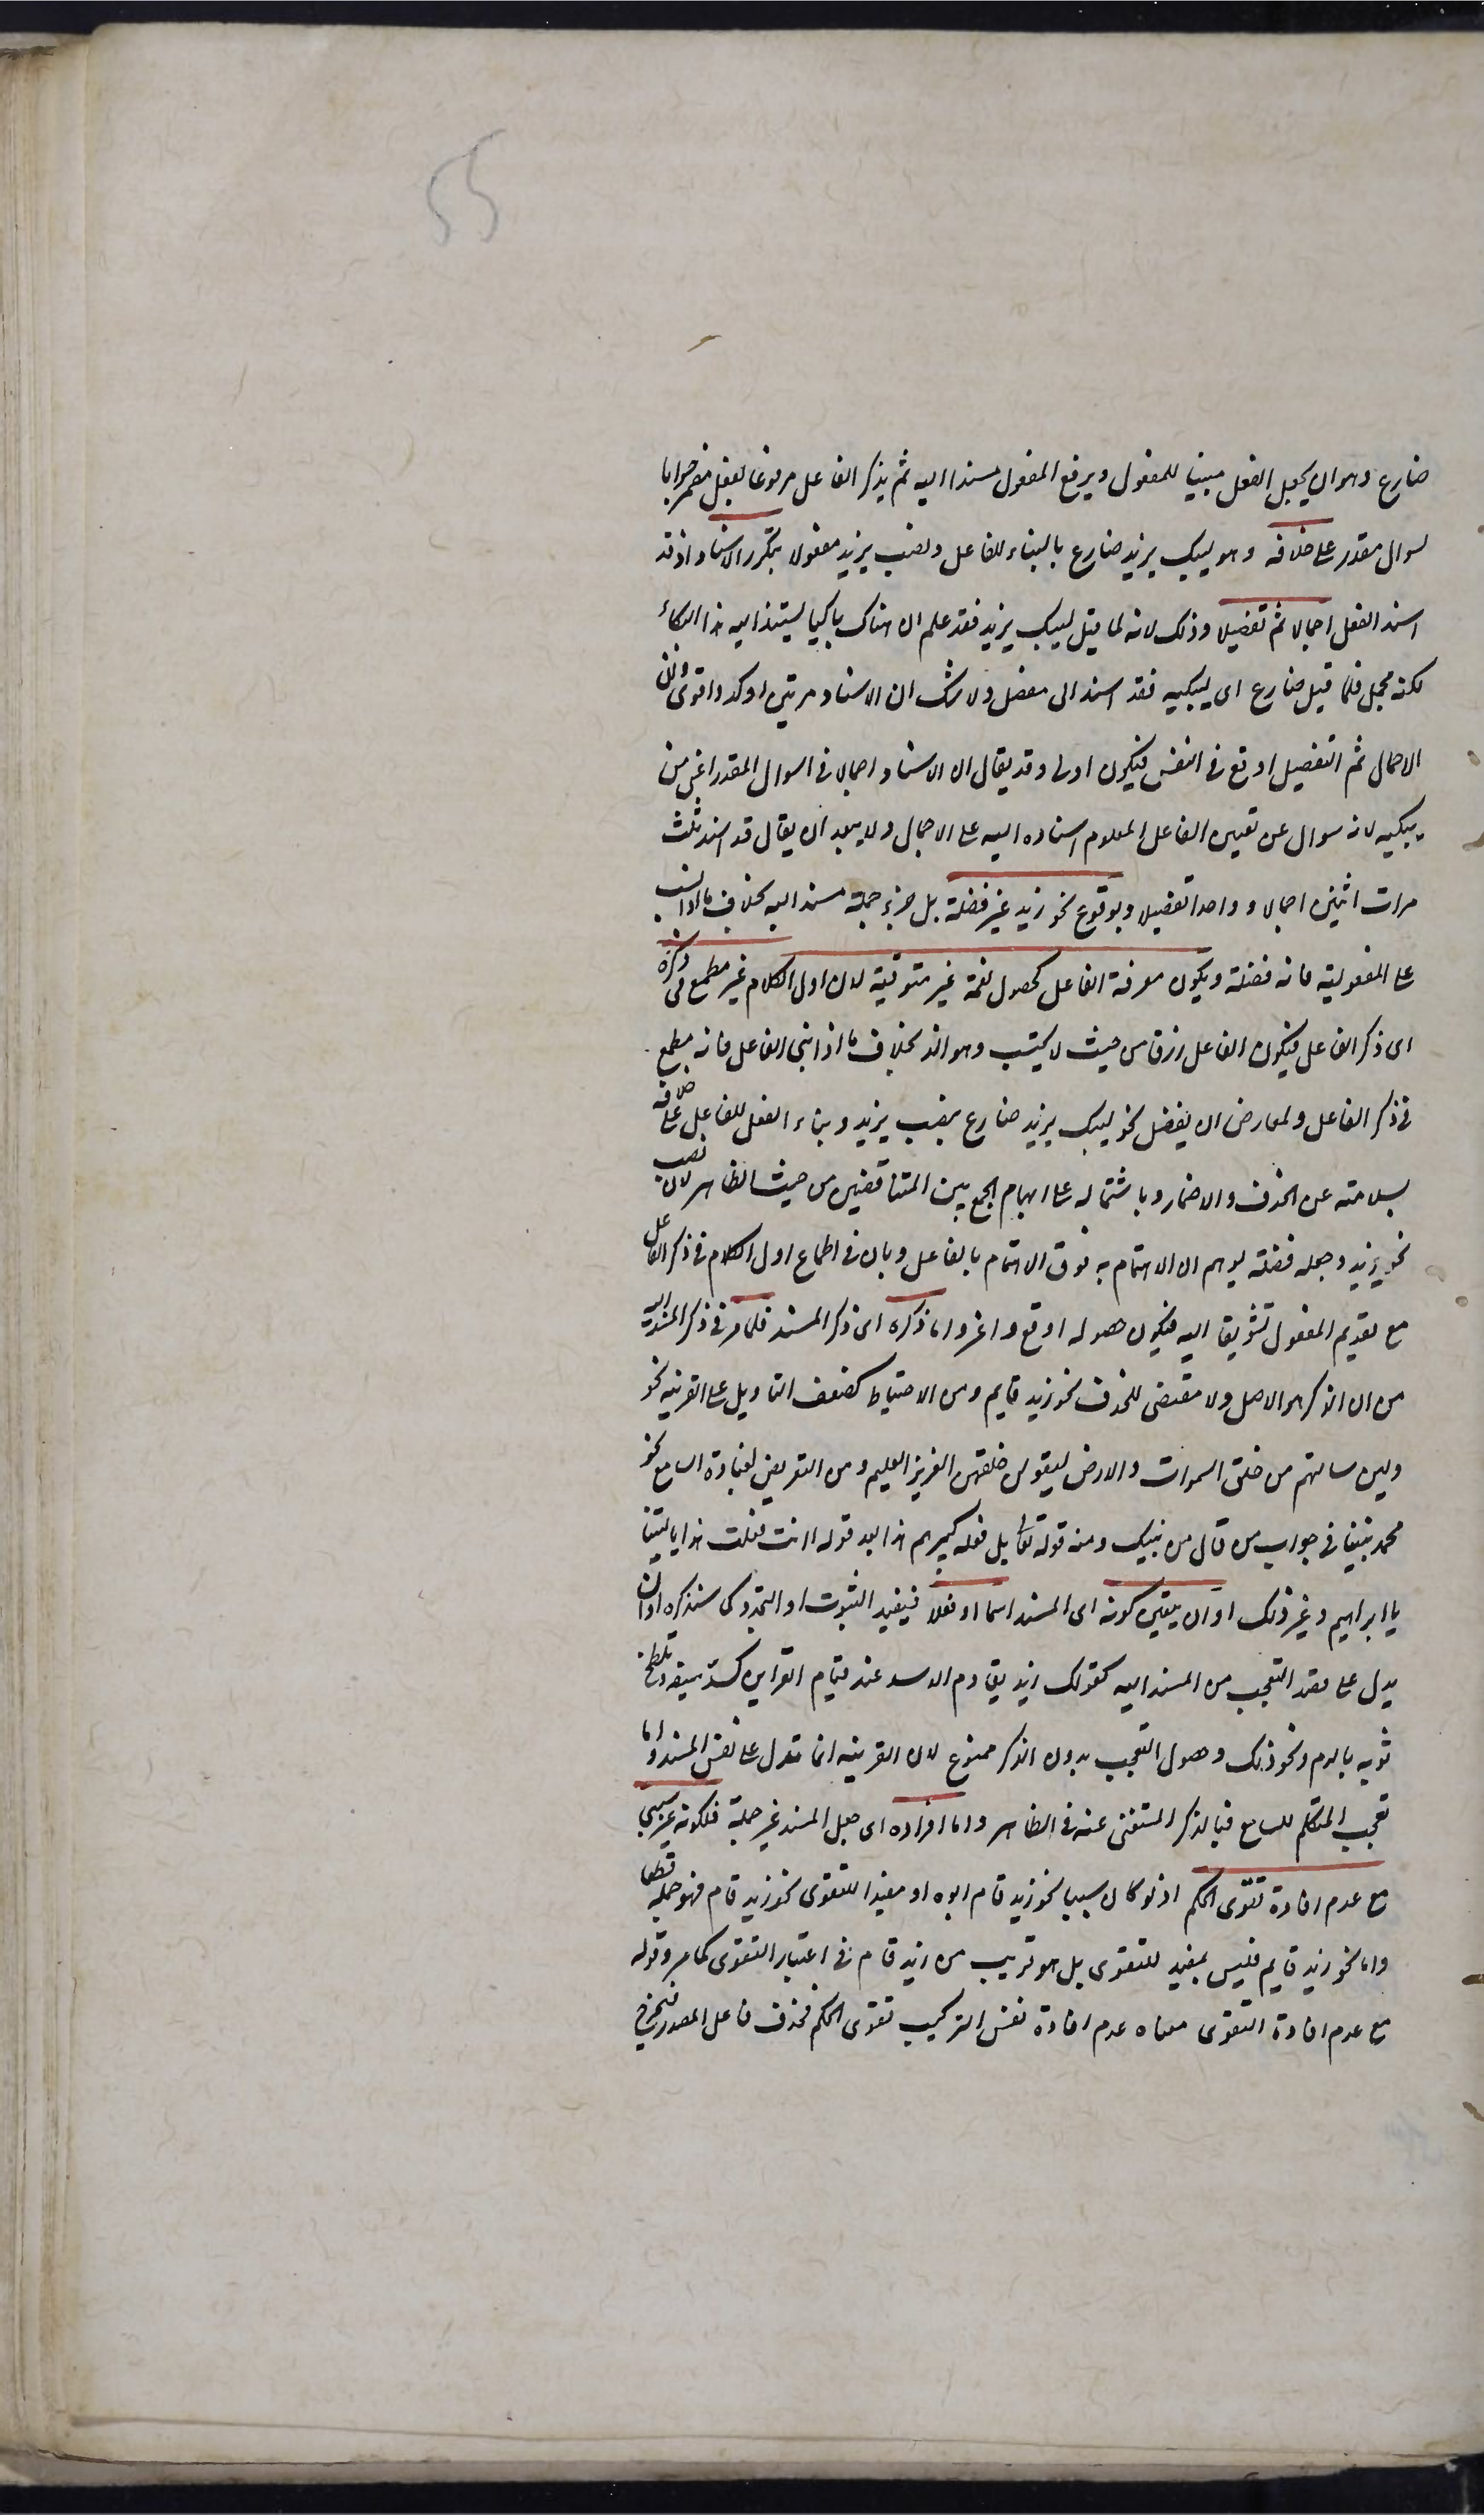 55
ضارع وهو ان يجعل الفعل مبنيا للمفعول ويرفع المفعول مسندا اليه ثم يذكر الفاعل مرفوعا بفعل مضمر جوابا
لسوال مقدر على خلافه وهو ليبك يزيد ضارع بالبناء للفاعل ونصب يزيد مفعولا بتكرر الاسناد اذ قد
اسند الفعل اجمالا ثم تفصيلا وذلك لانه لما قيل ليبك يزيد فقد علم ان هناك باكيا يستند اليه هذا البكاء
لكنه مجمل فلما قيل ضارع اى يبكيه فقد اسند الى مفصل ولا شك ان الاسناد مرتين اوكد واقوى وان
الاجمال ثم التفصيل اوقع فى النفس فيكون اولى وقد يقال ان الاسناد اجمالا فى السوال المقدر اعنى من
يبكيه لانه سوال عن تعيين الفاعل المعلوم اسناده اليه على الاجمال ولا يبعد ان يقال قد اسند ثلث
مرات اثنين اجمالا وواحدا تفصيلا وبوقوع نحو زيد غير فضلة بل جزء جملة مسندا اليه بخلاف ما اذا نصب
على المفعولية فانه فضلة وبكون معرفة الفاعل كحصول نعمة غير مترقبة لان اول الكلام غير مطمع فى ذكره
اى ذكر الفاعل فيكون الفاعل رزقا من حيث لا يحتسب وهو الذ بخلاف ما اذا بنى للفاعل فانه مطمع
فى ذكر الفاعل ولمعارض ان يفضل نحو ليبك يزيد ضارع بنصب يزيد وبناء الفعل للفاعل على خلافه
بسلامته عن الحذف والاضمار وباشتماله على ايهام الجمع بين المتناقضين من حيث الظاهر لان نصب
نحو يزيد وجعله فضلة يوهم ان الاهتمام به فوق الاهتمام بالفاعل وبان فى اطماع اول الكلام فى ذكر الفاعل
مع تقديم المفعول تشويقا اليه فيكون حصوله اوقع واعز واما ذكره اى ذكر المسند فلما مر فى ذكر المسند اليه
من ان الذكر هو الاصل ولا مقتضى للحذف نحو زيد قايم ومن الاحتياط لضعف التاويل على القرينه نحو
ولين سالتهم من خلق السموات والارض ليقولن خلقهن العزيز العليم ومن التعريض بغباوة السامع نحو
محمد نبينا فى جواب من قال من نبيك ومنه قوله تعالى بل فعله كبيرهم هذا بعد قوله اانت فعلت هذا بالهتنا
يا ابراهيم وغير ذلك او ان يتعين كونه اى المسند اسما او فعلا فيفيد الثبوت او التجدد كما سنذكره او ان
يدل على قصد التعجب من المسند اليه كقولك زيد يقاوم الاسد عند قيام القراين كسل سيفه وتلطخ
ثوبه بالدم ونحو ذلك وحصول التعجب بدون الذكر ممنوع لان القرينه انما تدل على نفس المسند واما
تعجيب المتكلم للسامع فبالذكر المستغنى عنه فى الظاهر واما افراده اى جعل المسند غير جملة فلكونه غير سببى
مع عدم افادة تقوى الحكم اذ لو كان سببيا نحو زيد قام ابوه او مفيدا للتقوى نحو زيد قام فهو جملة قطعا
واما نحو زيد قايم فليس بمفيد للتقوى بل هو قريب من زيد قام فى اعتبار التقوى كما مر وقوله
مع عدم افادة التقوى معناه عدم افادة نفس التركيب تقوى الحكم فحذف فاعل المصدر فيخرج